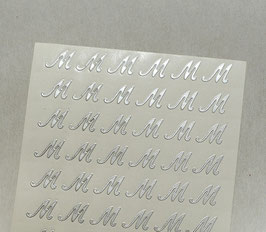 M M M M M M
M M M M M M
M M M M M M
M M M M M M
M M M M M M
M M M M M M